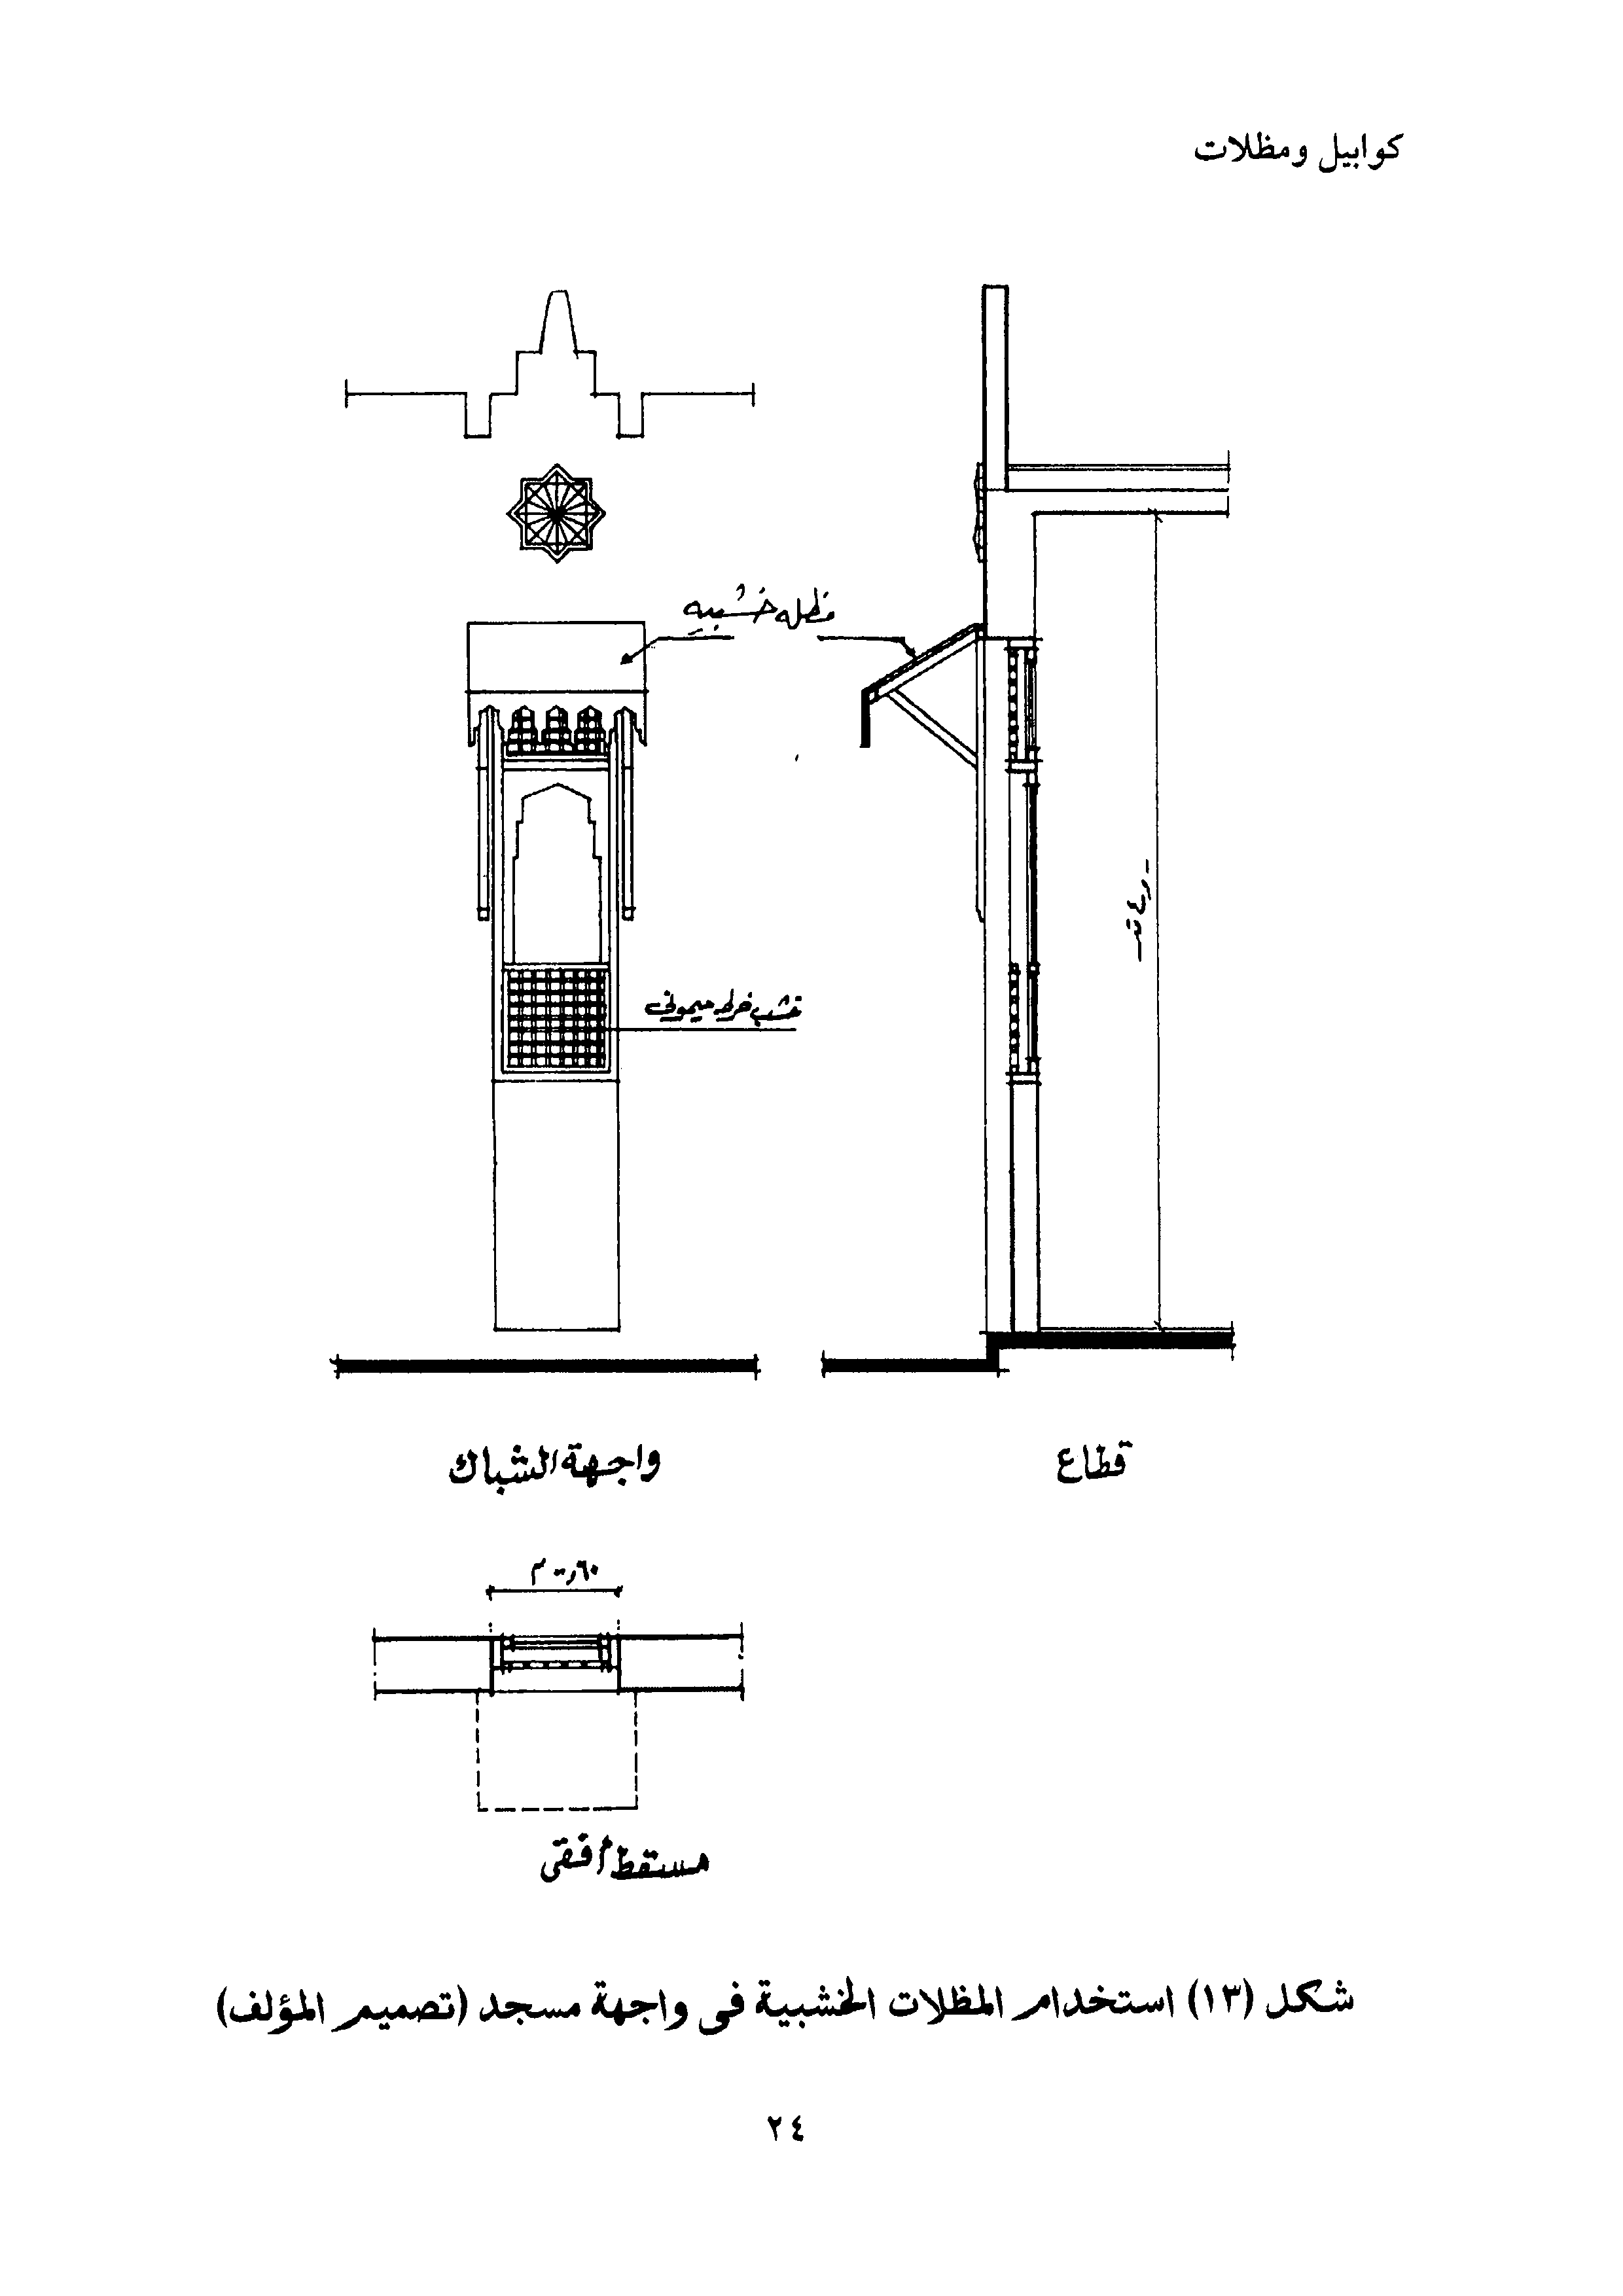 كوابيل ومظلات
مظله خشبيه
خشب خرط ميمونى
قطاع
واجهة الشباك
٠٫٦٠ م
مسقط أفقى
شكل (١٣) استخدام المظلات الخشبية فى واجهة مسجد (تصميم المؤلف)
٢٤